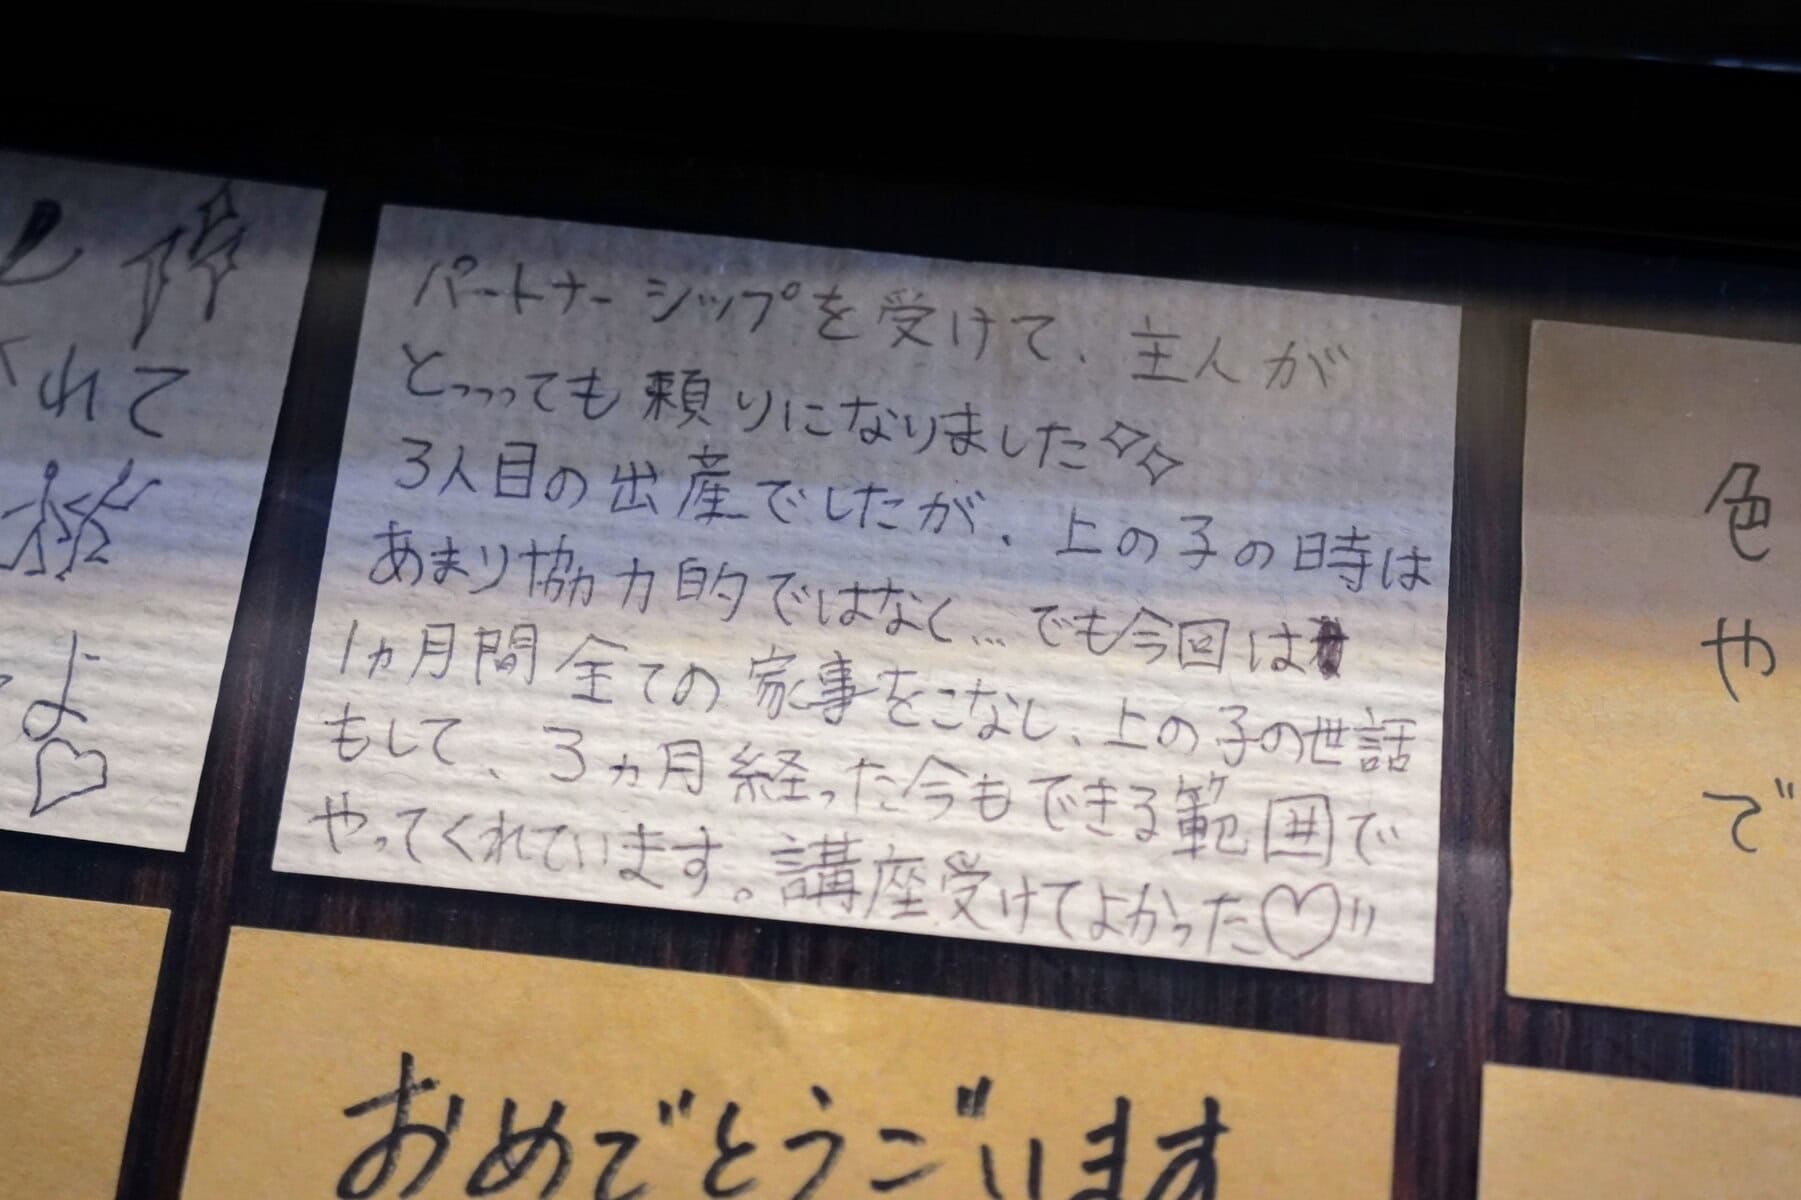 パートナーシップを受けて、主人が
とっっっても頼りになりました✧✧
3人目の出産でしたが、上の子の時は
あまり協力的ではなく… でも今回は
1ヵ月間全ての家事をこなし、上の子の世話
もして、3ヵ月経った今もできる範囲で
やってくれています。講座受けてよかった♡〃
れて
よ
♡
色
や
で
おめでとうございます